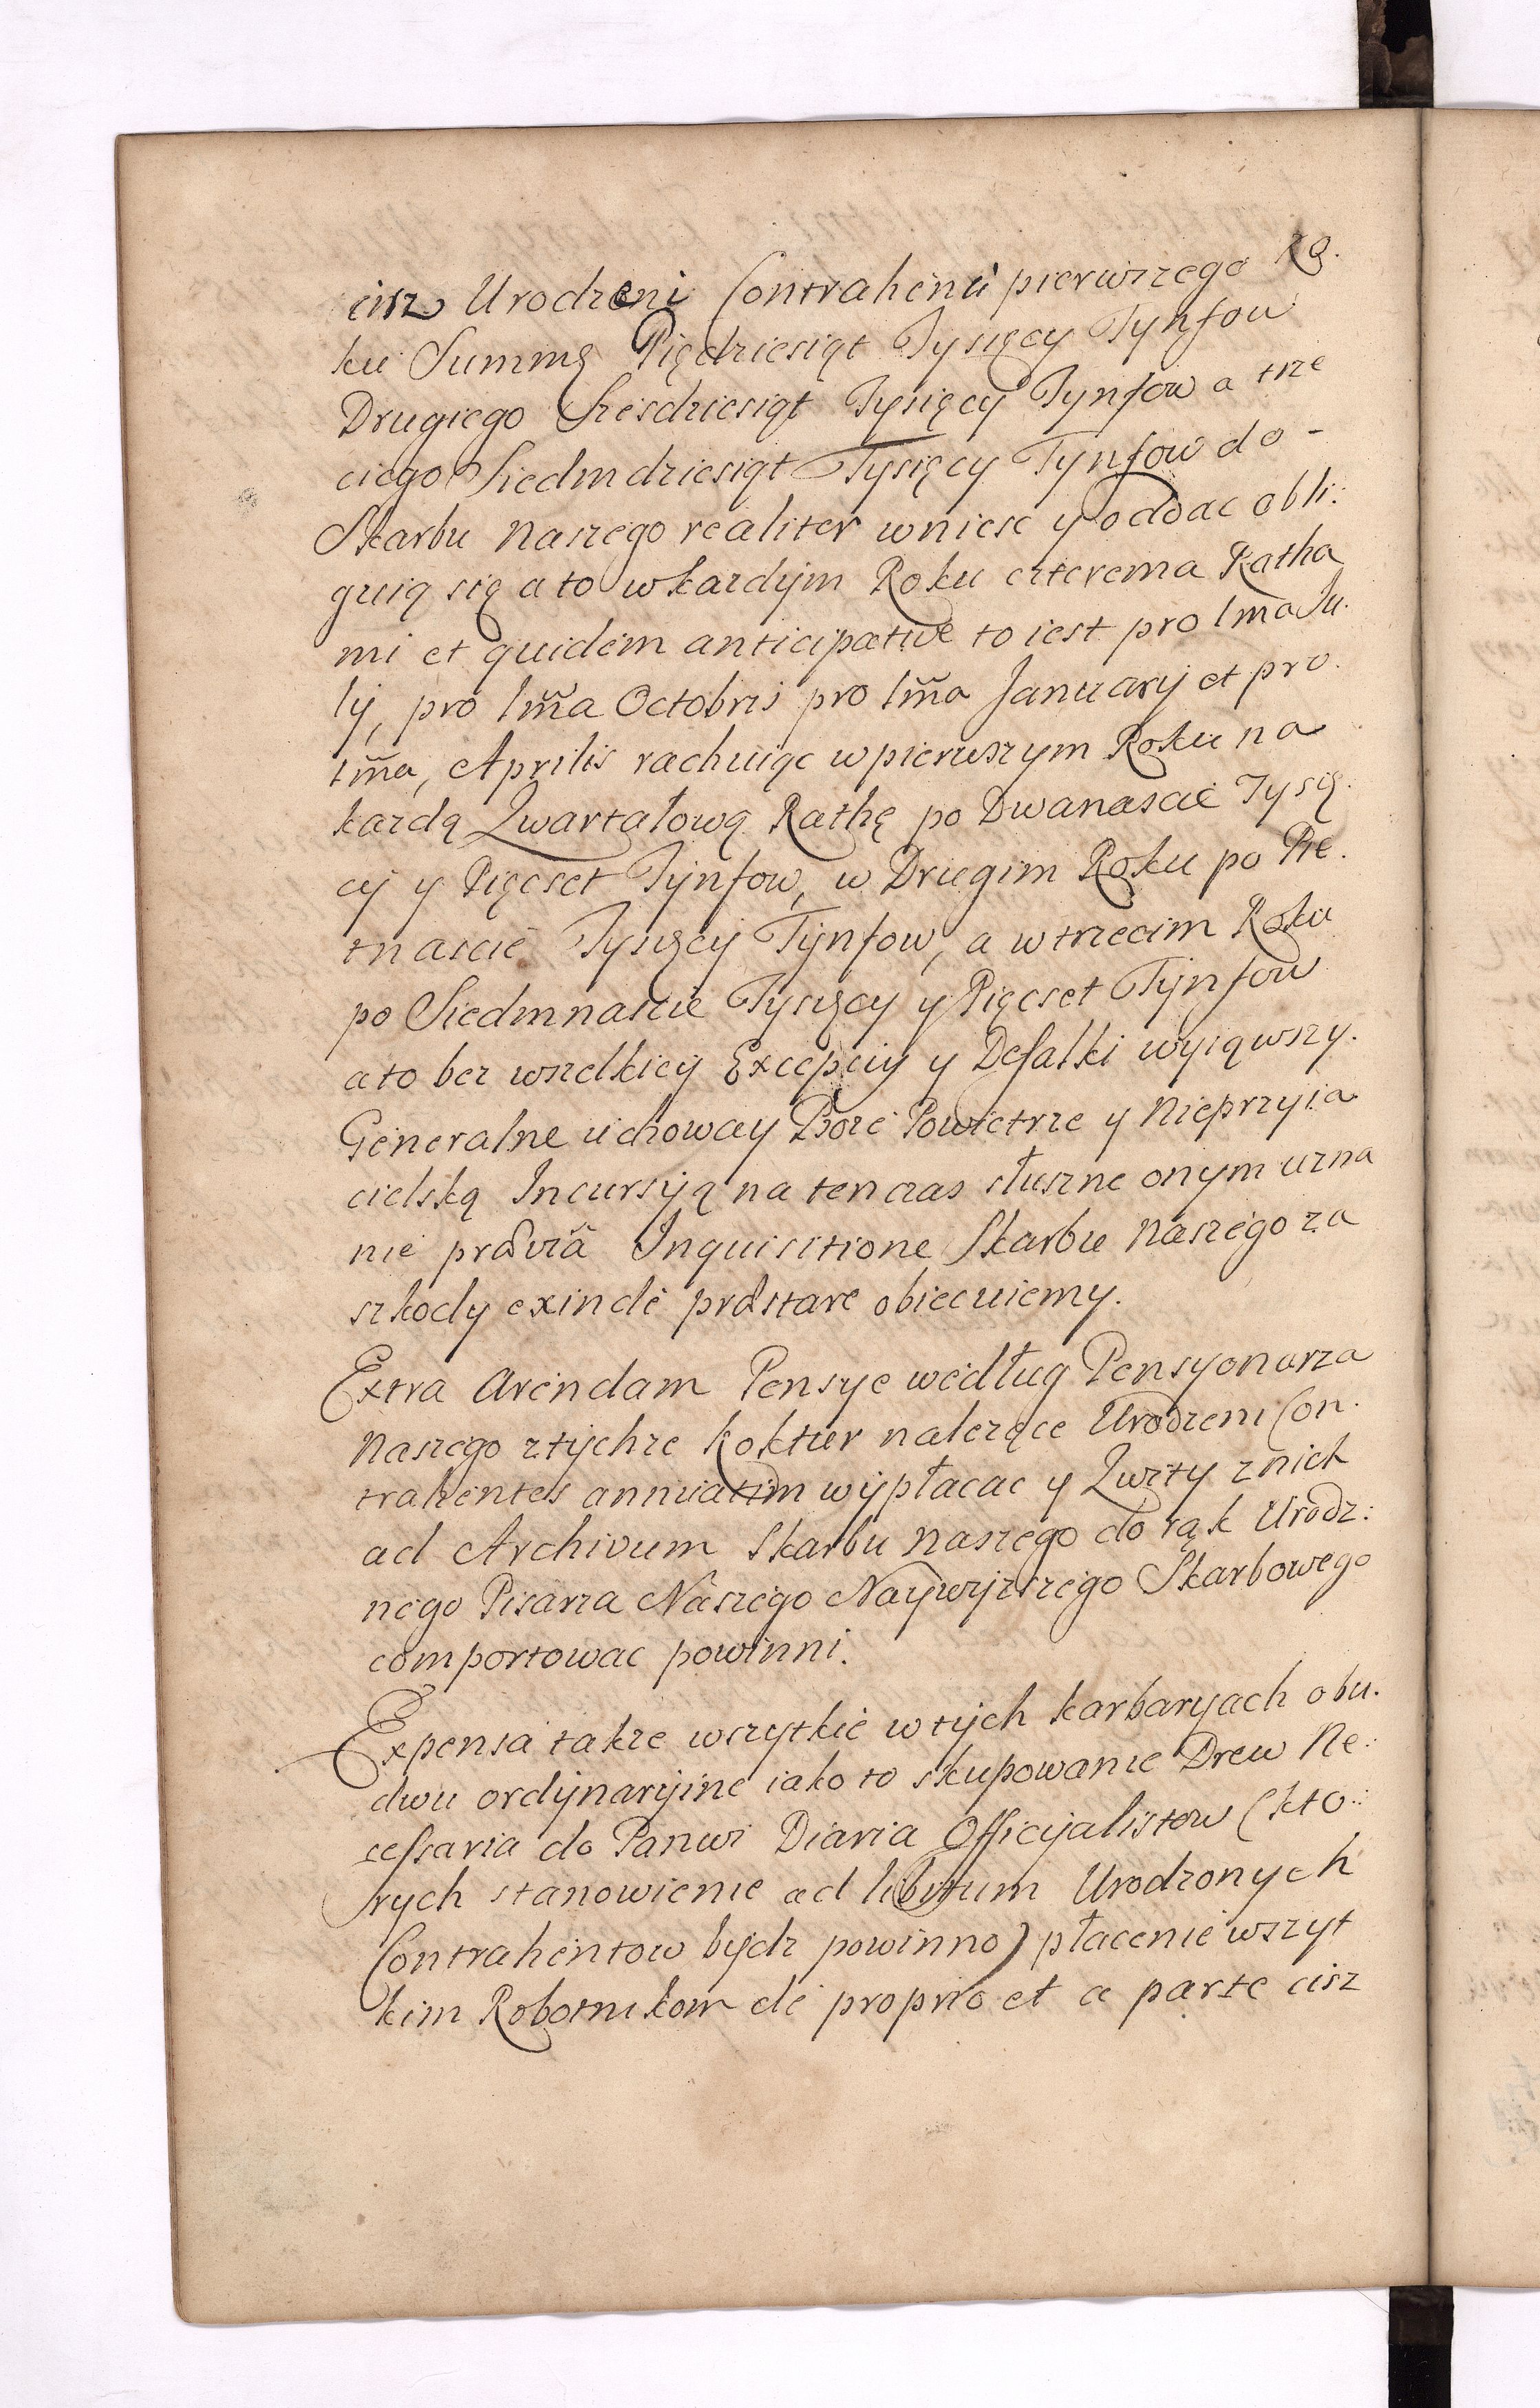 cisz Urodzeni Contrahenci pierwszego Ro.
ku Summę Pięćdziesiąt Tysięcy Tynfow
Drugiego Szesdziesiąt Tysięcy Tynfow a trze
ciego Siedmdziesiąt Tysięcy Tynfow do -
Skarbu Naszego realiter wniesc y oddac obli:
guią się a to w kazdym Roku czterema Ratha
mi et quidem anticipative to iest pro 1ma Ju.
lij, pro 1m̃a Octobris pro 1m̃a Januarij et pro.
1m̃a, Aprilis rachuiąc w pierwszym Roku na
kazdą Qwartałową Rathę po Dwanascie Tysię.
cy y Pięcset Tynfow, w Drugim Roku po Pię.
tnascie Tysięcy Tynfow, a w trzecim Roku
po Siedmnascie Tysięcy y Pięcset Tynfow
a to bez wszelkiey Excepciy y Defalki wyiąwszy.
Generalne uchoway Boze Powietrze y Nieprzyia
cielską Incursyią na tenczas słuszne onym uzna
nie prævia Inquisitione Skarbu Naszego za
szkody exinde præstare obiecuiemy.
Extra Arendam Pensye według Pensyonarza
Naszego z tychze Koktur nalezące Urodzeni Con.
trahentes annuatim wypłacac y Qwity z nich
ad Archivum Skarbu Naszego do rąk Urodz:
nego Pisarza Naszego Naywyzszego Skarbowego
comportowac powinni.
Expensa takze wszytkie w tych karbaryach obu.
dwu ordynaryine iako to skupowanie Drew Ne:
cessaria do Panwi Diaria Officyalistow (kto:
rych stanowienie ad libitum Urodzonych
Contrahentow bydz powinno) płacenie wszyt
kim Robotnikom de proprio et a parte cisz